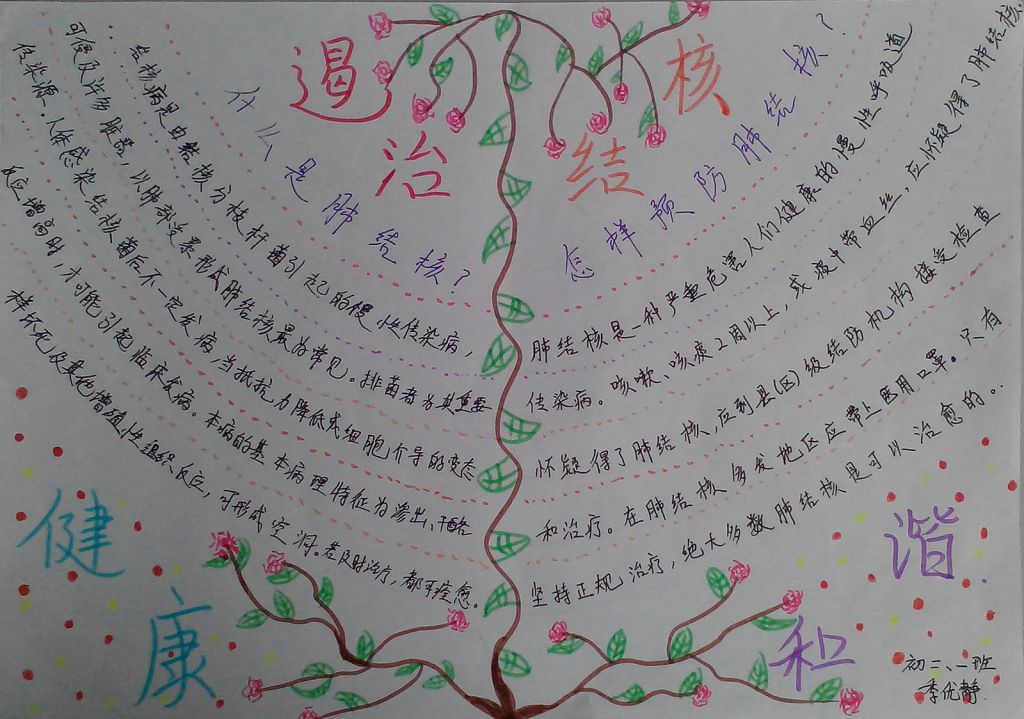 遏治结核
什么是肺结核？
结核病是由结核分枝杆菌引起的慢性传染病，
可侵及许多脏器，以肺部汲累形成肺结核最为常见。排菌者为其重要
传染源。人体感染结核菌后不一定发病，当抵抗力降低或细胞介导的变态
反应增高时，才可能引起临床发病。本病的基本病理特征为渗出、干酪
样坏死及其他增殖性组织反应，可形成空洞。若及时治疗，都可痊愈。
怎样预防肺结核？
肺结核是一种严重危害人们健康的慢性呼吸道
传染病。咳嗽、咳痰2周以上，或痰中带血丝，应怀疑得了肺结核。
怀疑得了肺结核，应到县(区)级结防机构接受检查
和治疗。在肺结核多发地区应带上医用口罩。只有
坚持正规治疗，绝大多数肺结核是可以治愈的。
健康
和谐
初二、一班
李优静